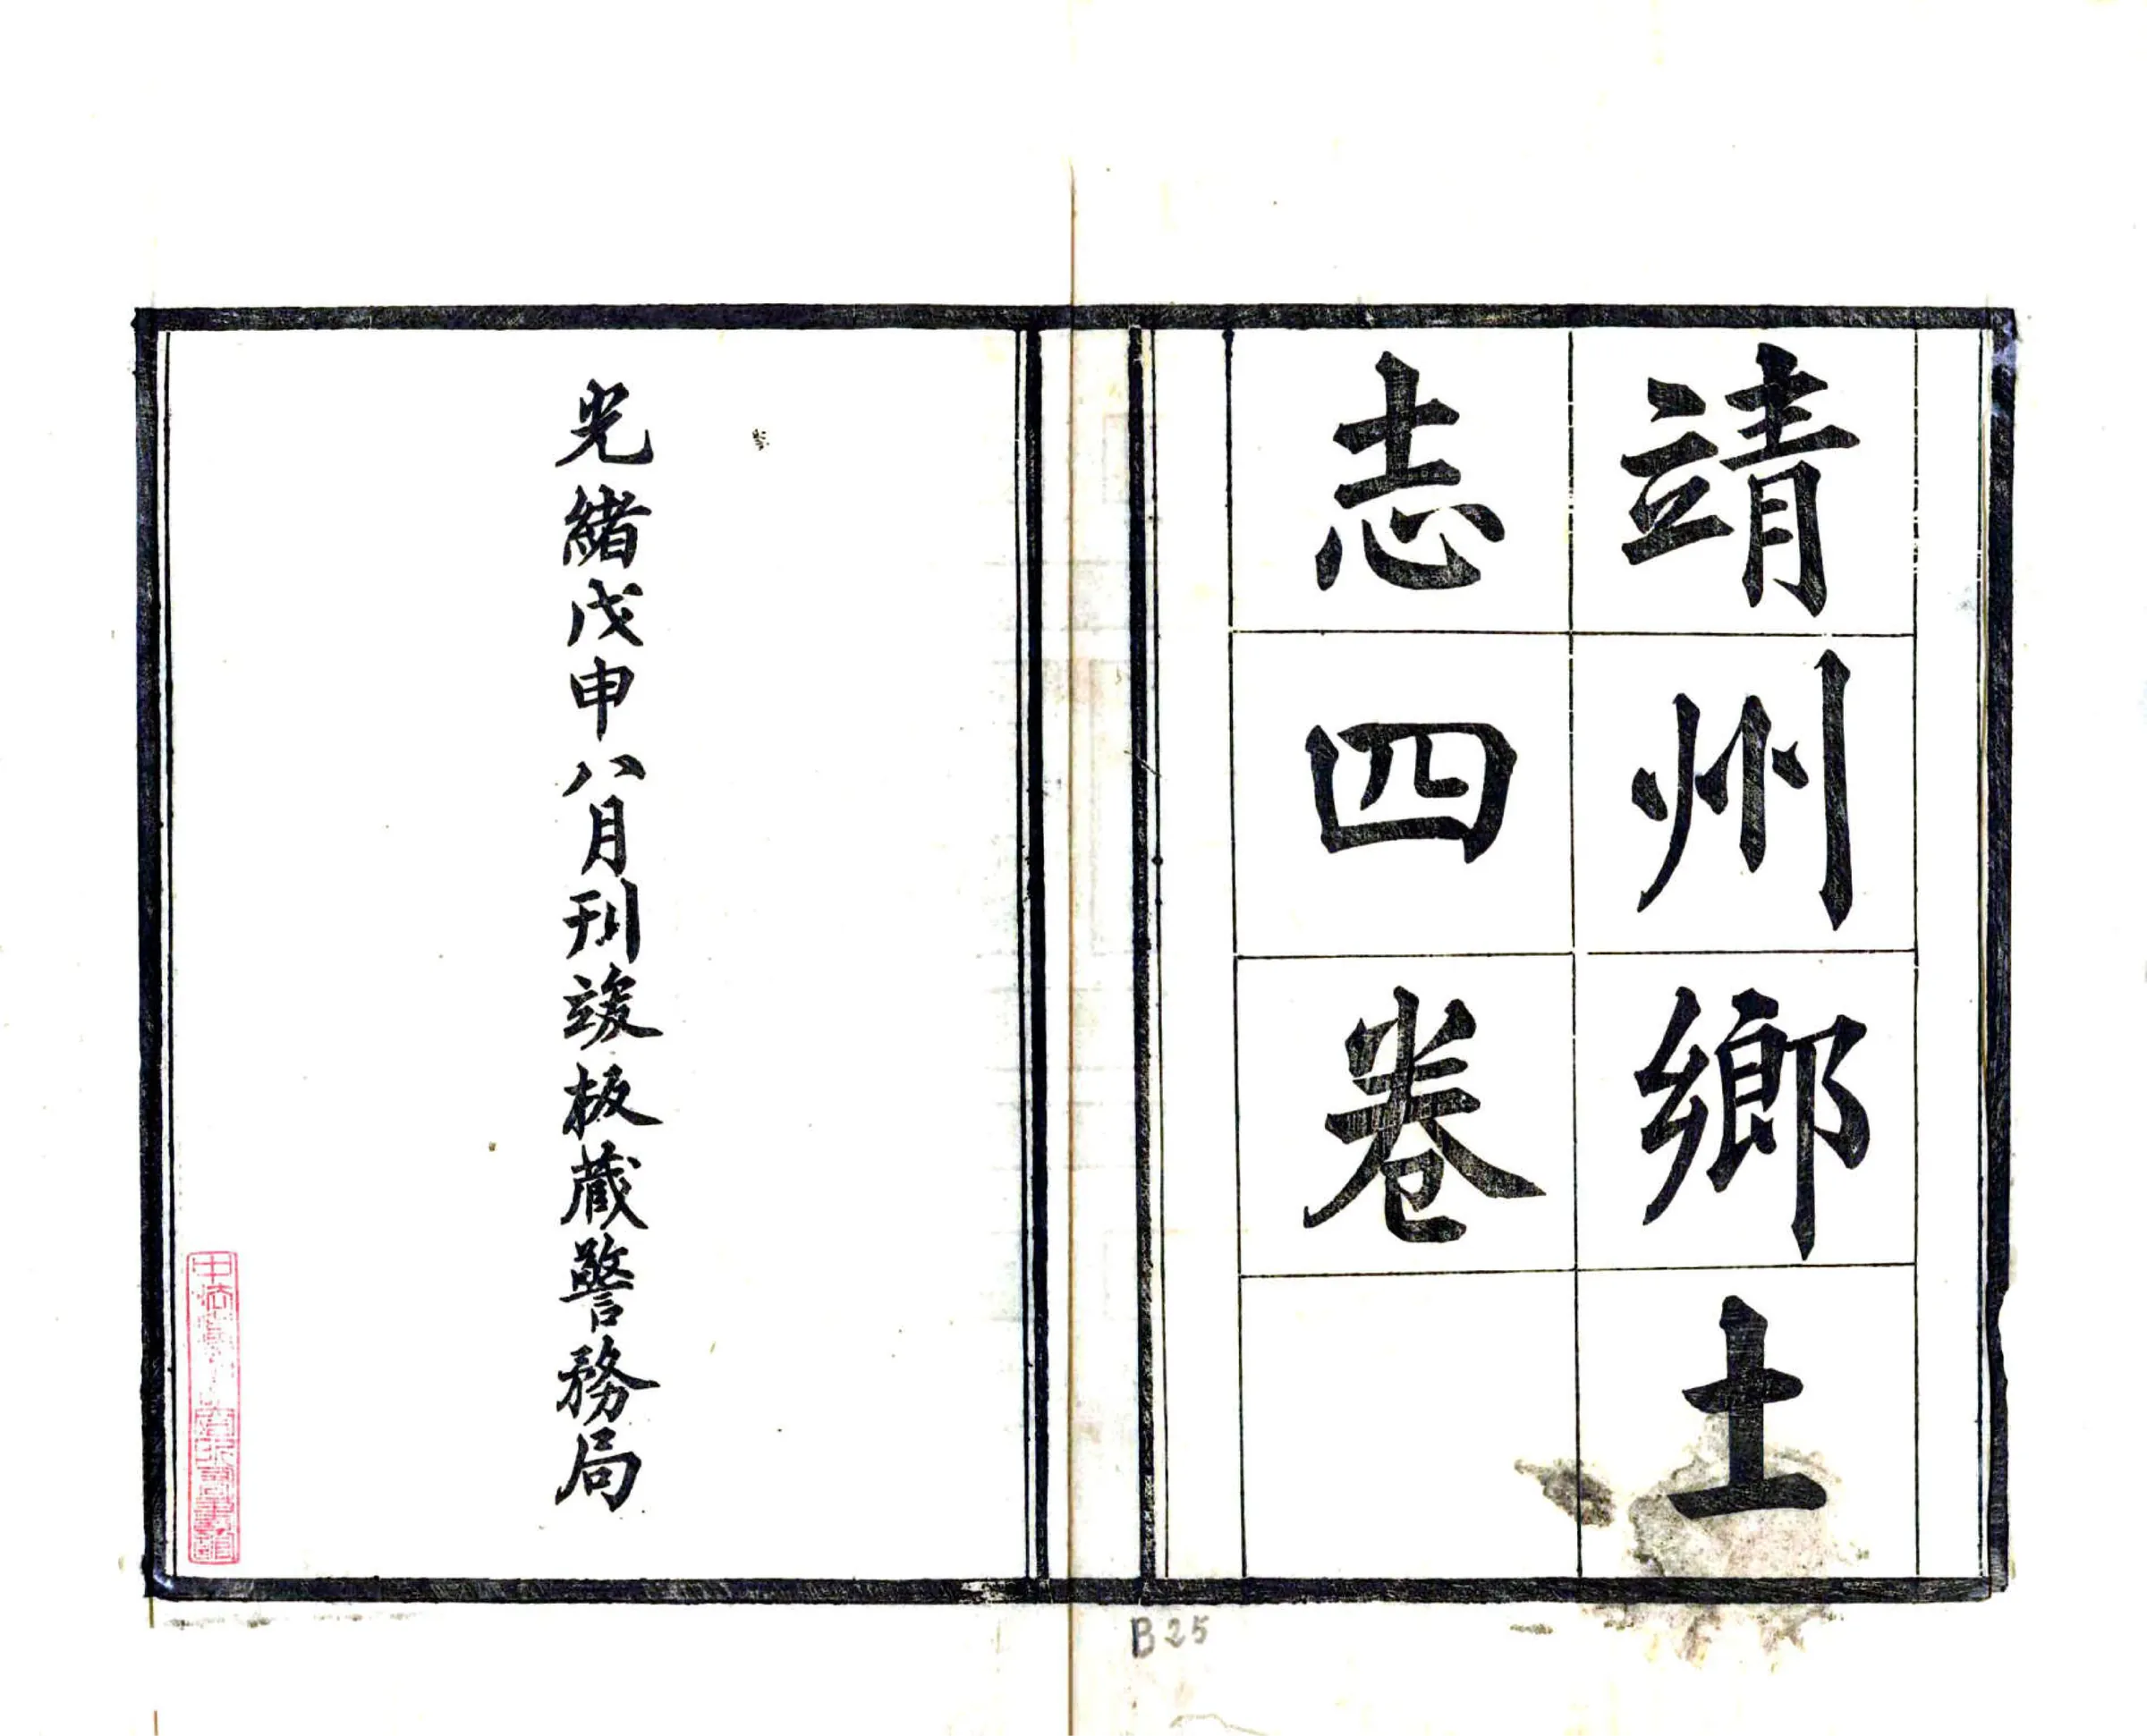 靖州鄉土
志四卷
光緒戊申八月刊竣板藏警務局
B25